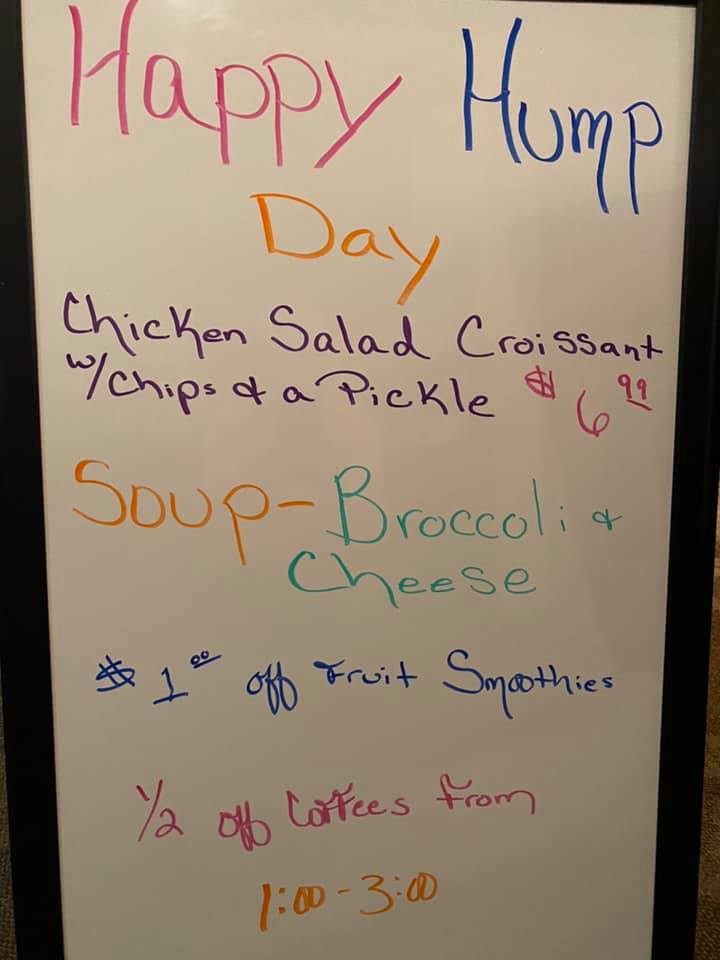 Happy Hump
Day
Chicken Salad Croissant
w/Chips & a Pickle $6.99
Soup - Broccoli &
Cheese
$1.00 off Fruit Smoothies
1/2 off Coffees from
1:00 - 3:00